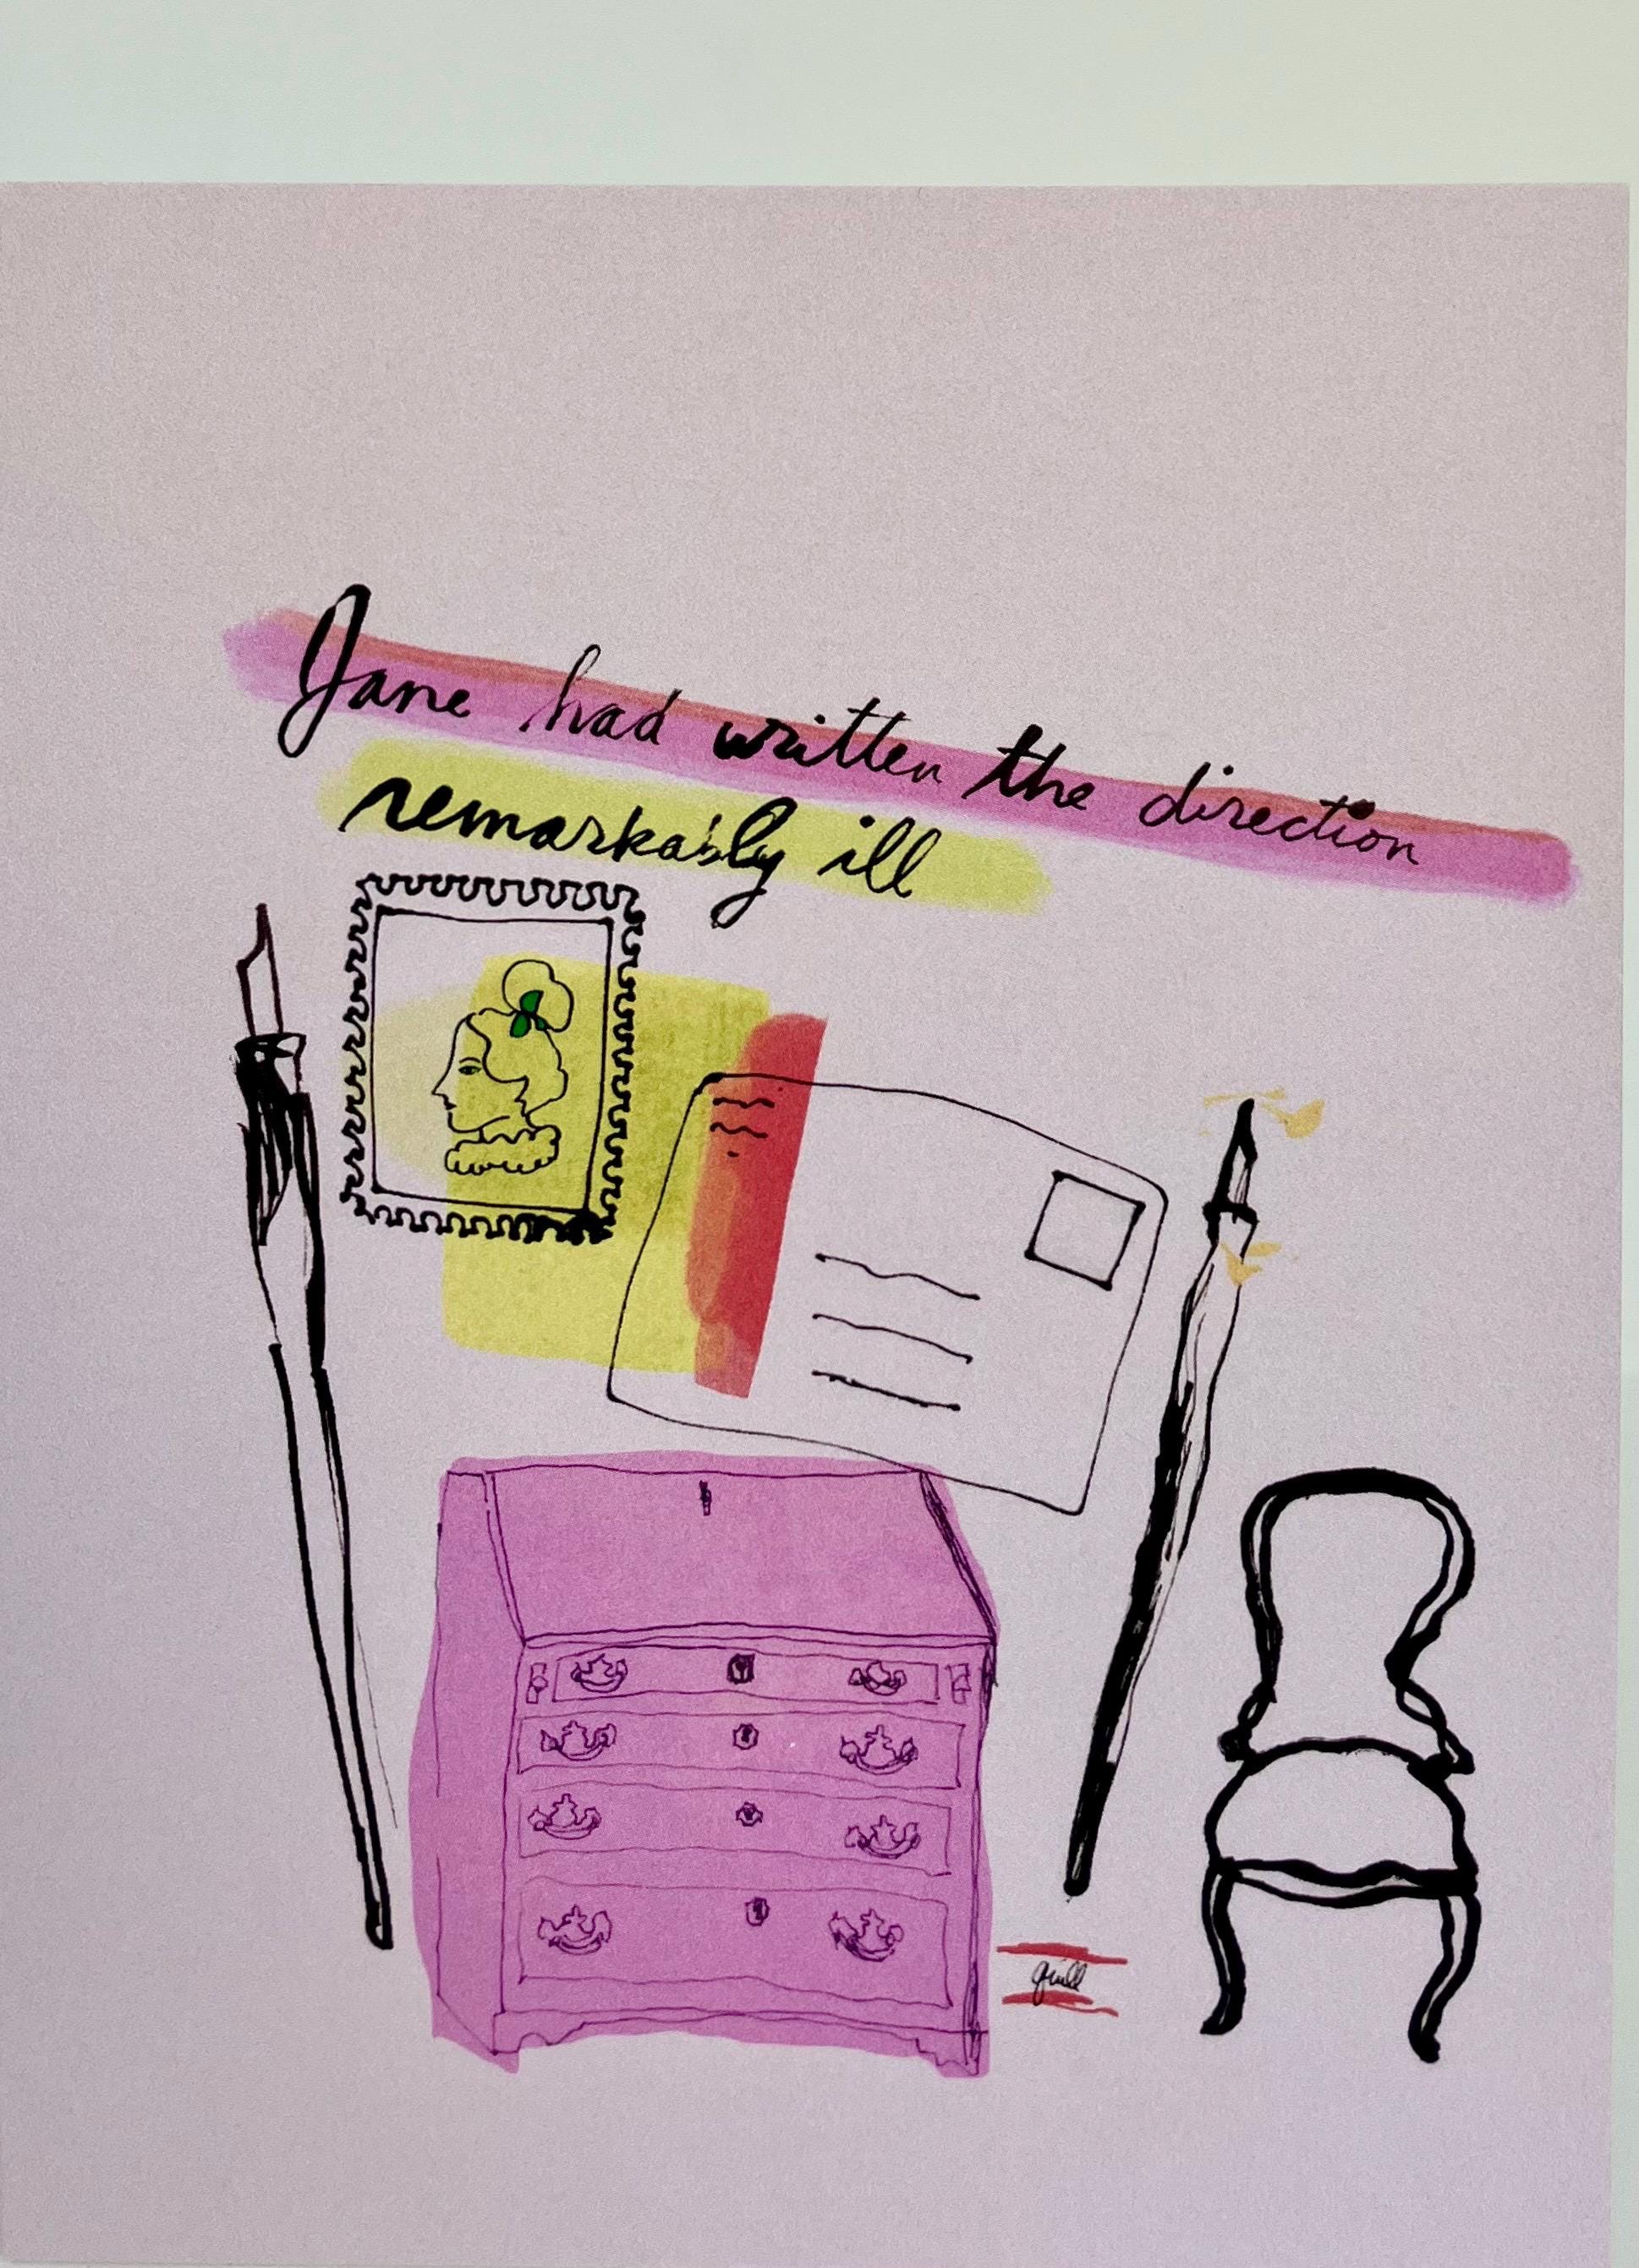 Jane had written the direction
remarkably ill
quill